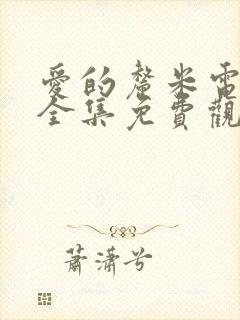 愛的釐米電
全集免費觀
蕭瀟兮